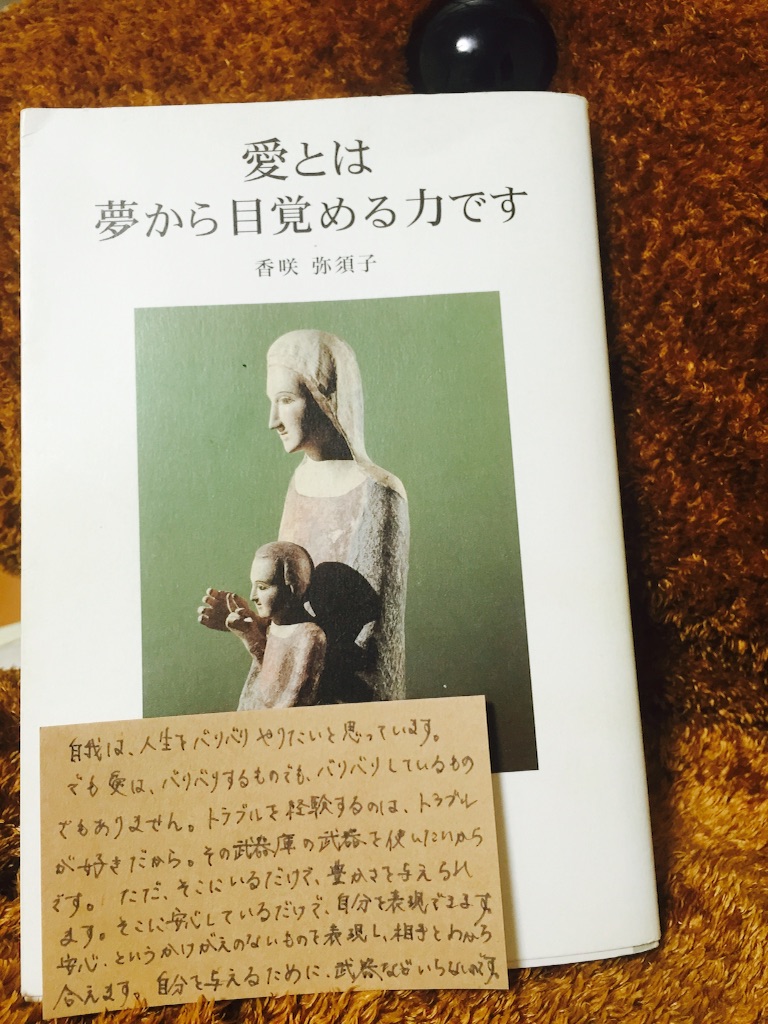 愛とは
夢から目覚める力です
香咲 弥須子
自我は、人生をバリバリやりたいと思っています。
でも愛は、バリバリするものでも、バリバリしているもの
でもありません。トラブルを経験するのは、トラブル
が好きだから。その武器庫の武器を使いたいから
です。ただ、そこにいるだけで、豊かさを与えられ
ます。そこに安心しているだけで、自分を表現できます。
安心、というかけがえのないものを表現し、相手とわかち
合えます。自分を与えるために、武器などいらないのです。